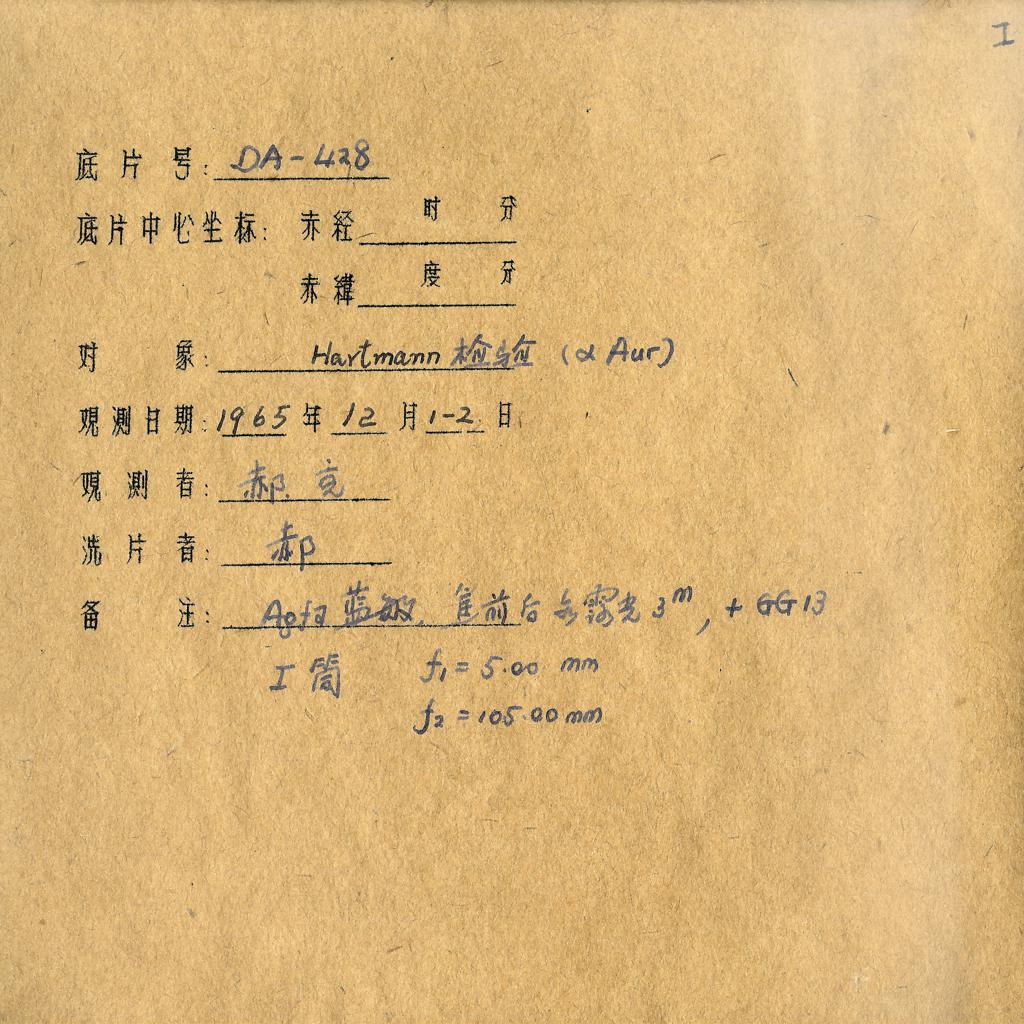 I
底片号: DA-428
底片中心坐标: 赤经 时 分
赤緯 度 分
对象: Hartmann 检验 (α Aur)
观测日期: 1965 年 12 月 1-2 日
观测者: 郝 亮
洗片者: 郝
备注: Agfa 蓝敏, 焦前后各露光 3ᵐ, + GG13
I 筒 f₁ = 5.00 mm
f₂ = 105.00 mm